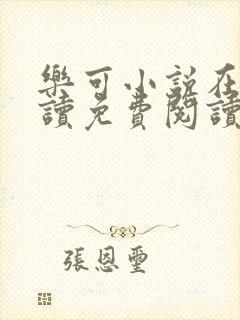 樂可小説在
讀免費閱讀
張恩璽